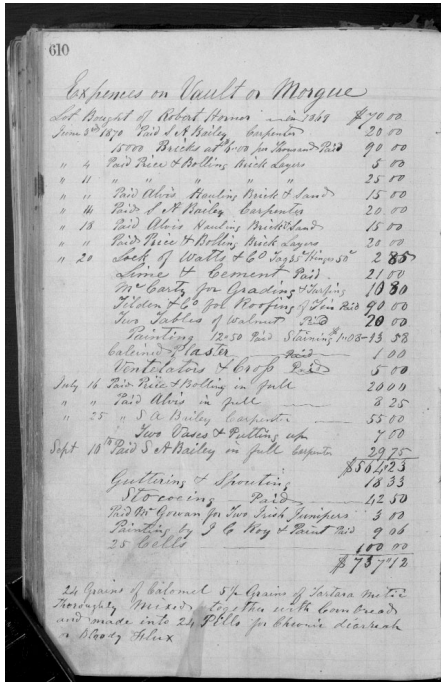 610
Expences on Vault or Morgue
Lot Bought of Robert Honnor in 1869 $70.00
June 3rd 1870 Paid S A Bailey Carpenter 20 00
15000 Bricks at 6.00 per Thousand Paid 90 00
" 4 Paid Rice & Bolling Brick Layers 5 00
" 11 " " " " " 25 00
" " Paid Alvis Hauling Brick & Sand 15 00
" 14 Paid S A Bailey Carpenter 20.00
" 18 Paid Alvis Hauling Brick & Sand 15 00
" " Paid Rice & Bolling Brick Layers 20 00
" 20 Lock of Watts & Co 2 85
Lime & Cement Paid 21 00
McCarty for Grading & 10 80
Tilden & Co for Roofing of Tin Paid 90 00
Two Tables of Walnut Paid 20 00
Painting 12.50 Paid Staining $1.08 — 13 58
Calcined Plaster Paid 1 00
Ventelators & Crop Paid 5 00
July 16 Paid Rice & Bolling in full 20 00
" " Paid Alvis in full 8 25
" 25 " S A Bailey Carpenter 55 00
" Two Vases & Putting up 7 00
Sept 10th Paid S A Bailey in full Carpenter 29 75
$564.23
Guttering & Spouting 18 33
Stococing Paid 42 50
Paid McGowan for Two Irish Junipers 3 00
Painting by J C Koy & Paint Paid 9 06
25 Cells 100 00
$737.12
24 Grains of Calomel 5 pr Grains of Tartara Metic
Thoroughly Mixed together with Cornbread
and made into 24 Pills for Chronic diareah
or Bloody Flux